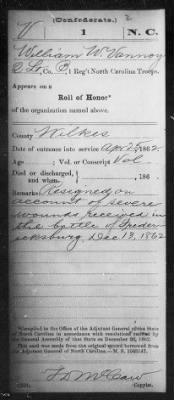 (Confederate.) 2
V 1 N.C.
William W. Vannoy
2 Lt, Co. C, 1 Reg't North Carolina Troops.
Appears on a
Roll of Honor*
of the organization named above.
County Wilkes
Date of entrance into service Apr 25, 186 2.
Age : Vol. or Conscript Vol
Died or discharged,
and when. , 186 .
Remarks: Resigned on
account of severe
wounds received in
the battle of Freder-
icksburg, Dec 13, 1862
*Compiled in the Office of the Adjutant General of the State
of North Carolina in accordance with resolutions ratified by
the General Assembly of that State on December
This card was made from the original record borrowed from
the Adjutant General of North Carolina.—
Copyist.